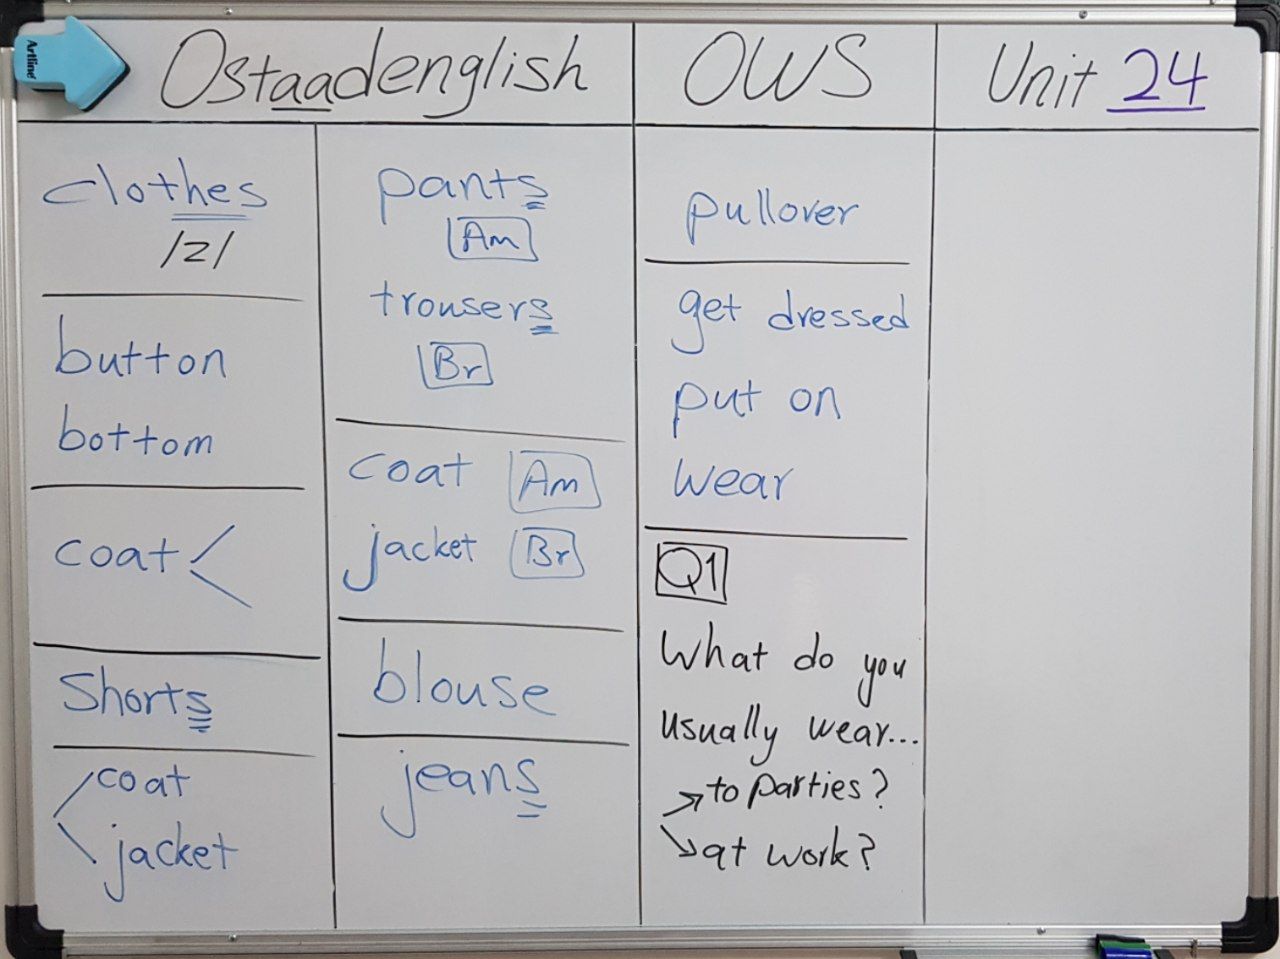 Artline
Ostaadenglish
OWS
Unit 24
clothes
/z/
button
bottom
coat
Shorts
coat
jacket
pants
Am
trousers
Br
coat Am
jacket Br
blouse
jeans
pullover
get dressed
put on
wear
Q1
What do you
usually wear...
to parties?
at work?